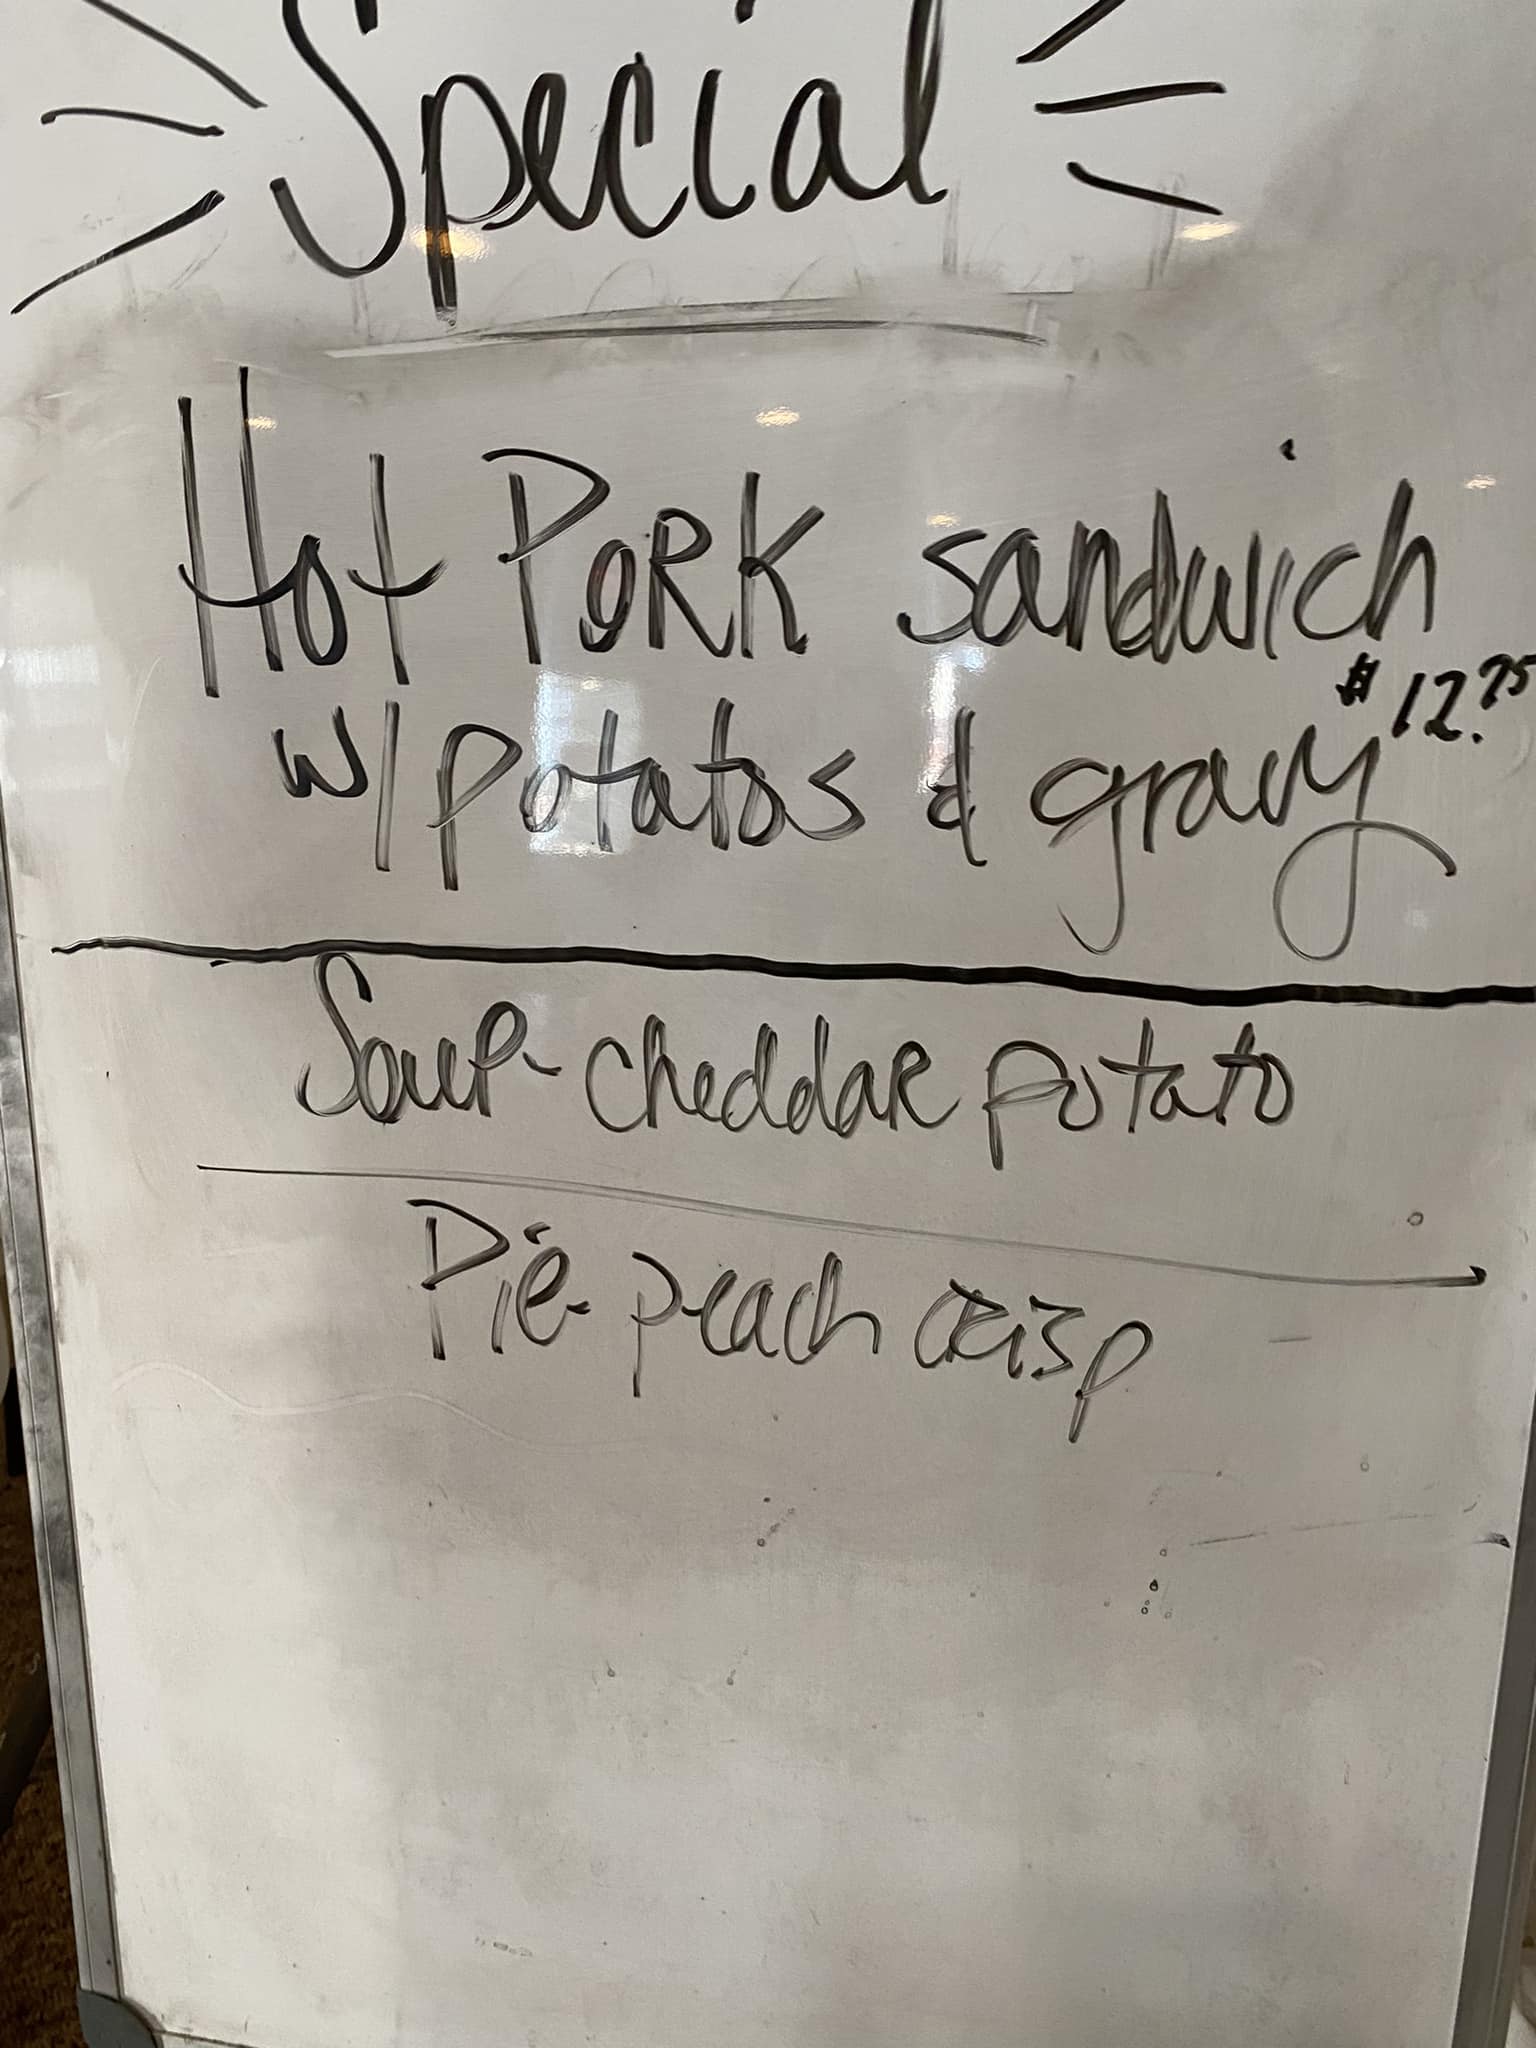 Special
Hot PORK sandwich
$12.75
w/potatos & gravy
Soup- cheddar potato
Pie- peach crisp